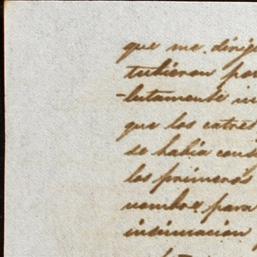 que me dirig
tubieron por
-lutamente in
que los catres
se habia cons
los primeros
nombre para
insinuacion